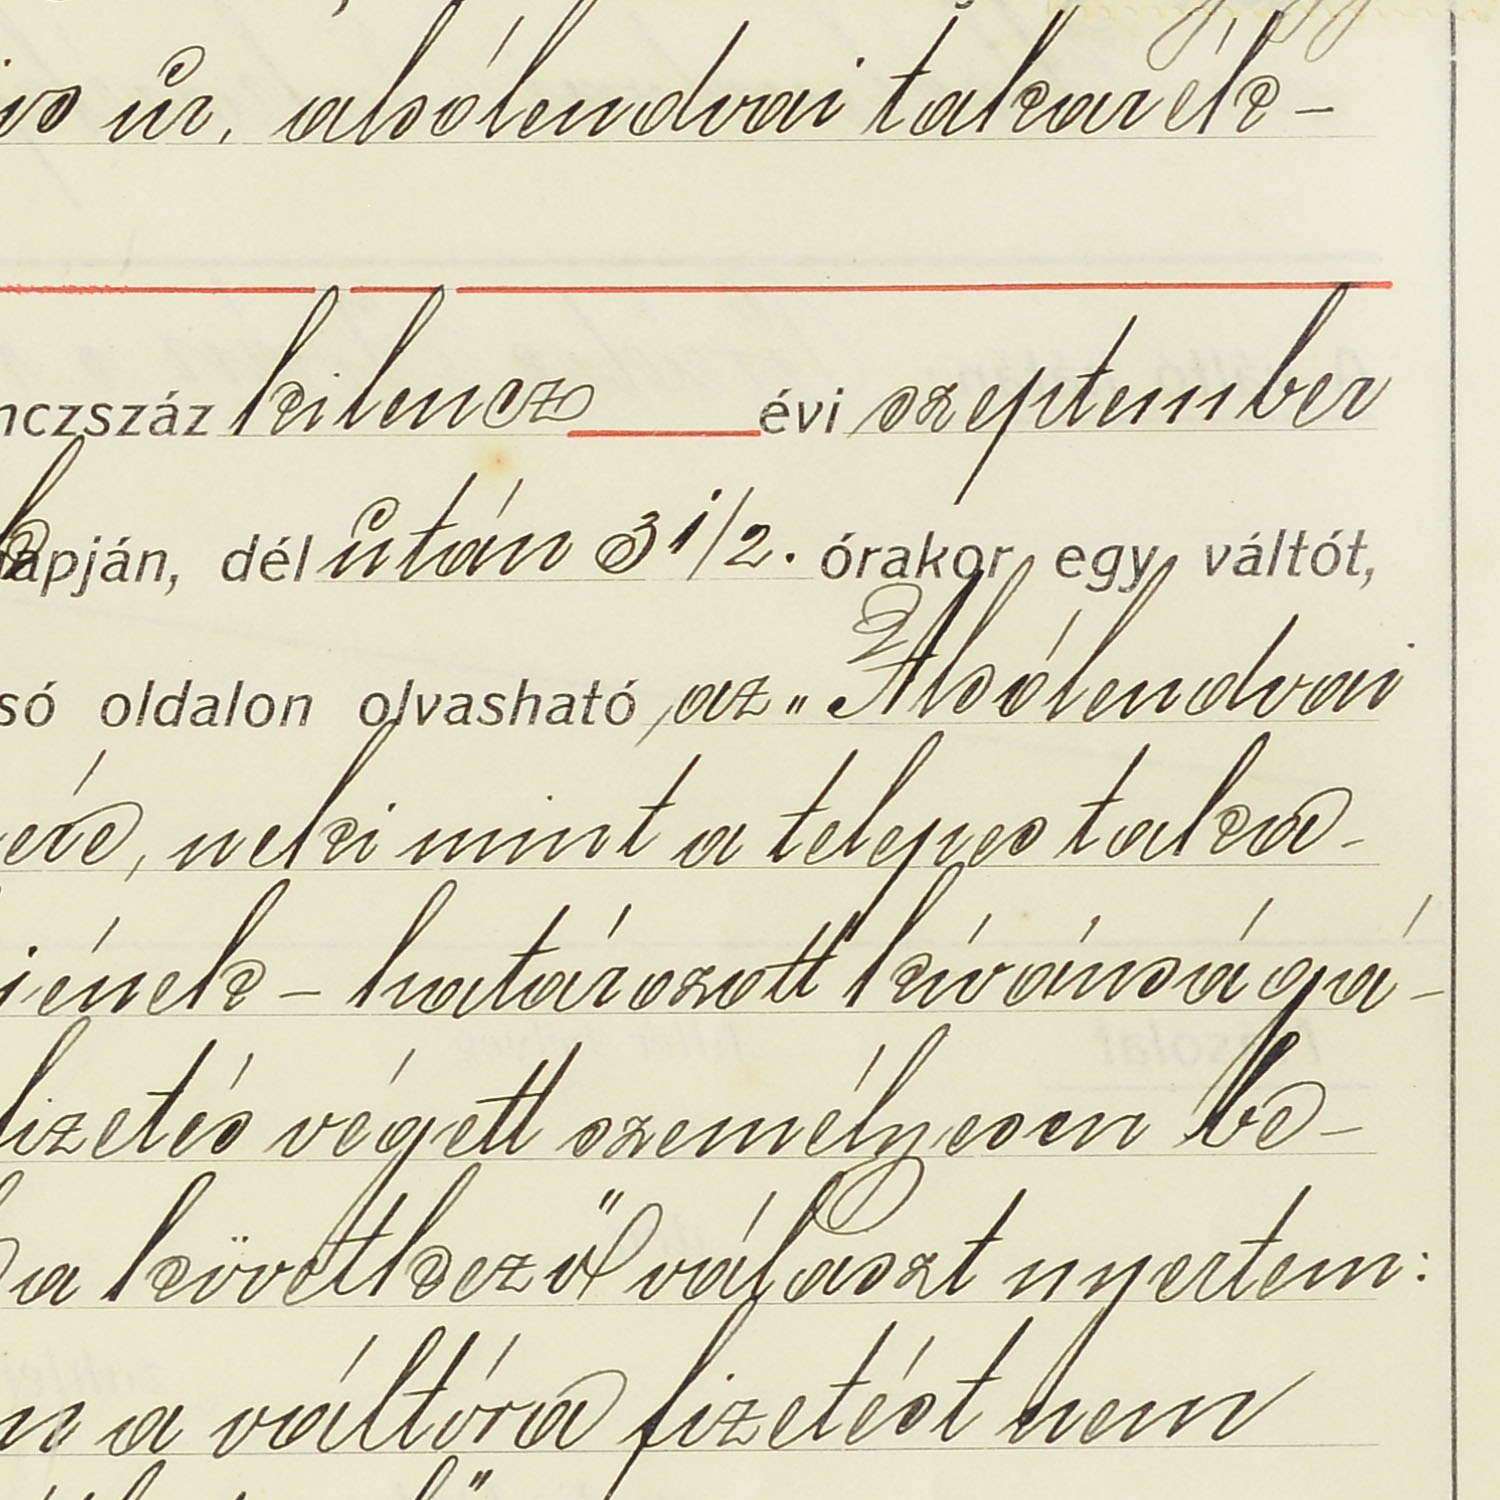 úr, alsólendvai takarék-
nczszáz kilencz évi szeptember
lapján, dél után 3 1/2. órakor egy váltót,
só oldalon olvasható, az „Alsólendvai
eré, neki mint a telepes taka-
jének - határozott kívánságá-
fizetés végett személyesen be-
a következő választ nyertem:
a váltóra fizetést nem